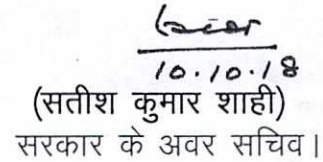 10.10.18
(सतीश कुमार शाही)
सरकार के अवर सचिव।